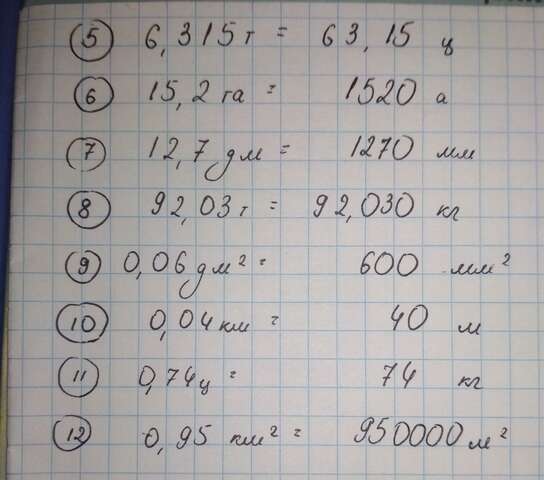 5 6,315 т = 63,15 ц
6 15,2 га = 1520 а
7 12,7 дм = 1270 мм
8 92,03 т = 92,030 кг
9 0,06 дм² = 600 мм²
10 0,04 км = 40 м
11 0,74 ц = 74 кг
12 0,95 км² = 950000 м²